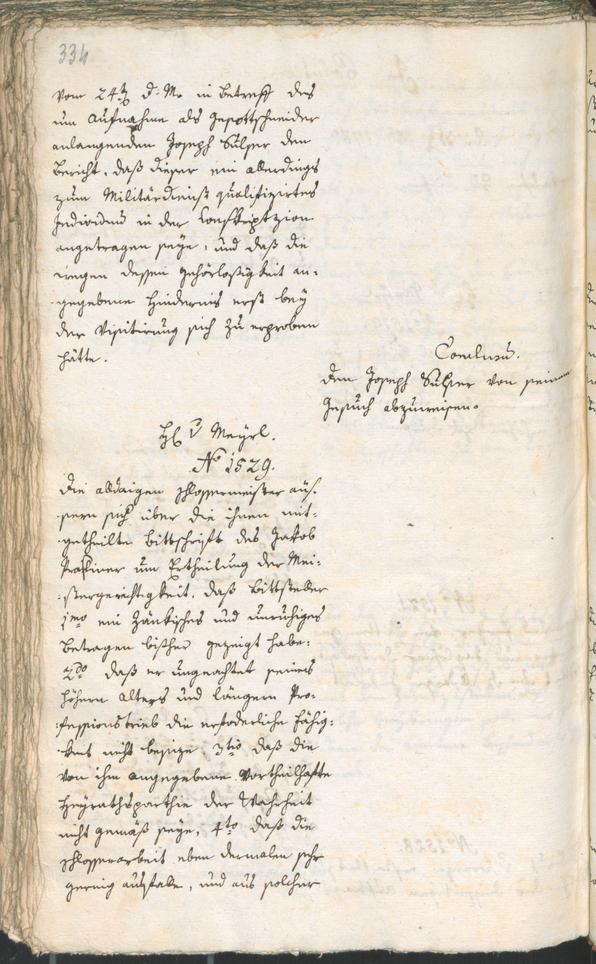 334
vom 24t d. M. in Betreff des
um Aufnahme als Gepottschneider
anlangenden Joseph Sulser den
Bericht, daß dieser ein allerdings
zum Militärdienst qualifizirtes
Individuum in der Conskriptzion
angetragen seye, und daß die
wegen dessen Gehörlosigkeit an-
gegebene Hindernis erst bey
der Visitirung sich zu erproben
hätte.
Conclusum.
Dem Joseph Sulser von seinem
Gesuch abzuweisen.
H: v Meyrl.
No 1529.
Die alldaigen Schlossermeister äus-
sern sich über die ihnen mit-
getheilte Bittschrift des Jakob
um Ertheilung der Mei-
stergerechtigkeit, daß Bittsteller
1mo ein zänkisches und unruhiges
Betragen bisher gezeigt habe:
2do daß er ungeachtet seines
höhern Alters und längern Pro-
fessionstrieb die erforderliche Fähig-
keit nicht besize, 3tio daß die
von ihm angegebene vortheilhafte
Heyrathsparthie der Wahrheit
nicht gemäß seye, 4to daß die
Schlosserarbeit eben dermalen sehr
gering ausfalle, und aus solcher